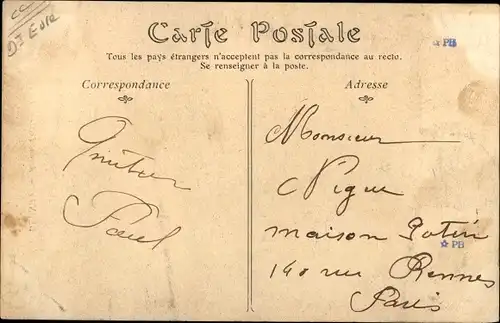 CC
Carte Postale
Tous les pays étrangers n'acceptent pas la correspondance au recto.
Se renseigner à la poste.
Correspondance
Adresse
PB
Paul
Monsieur
Vigue
maison Potin
PB
140 rue Rennes
Paris